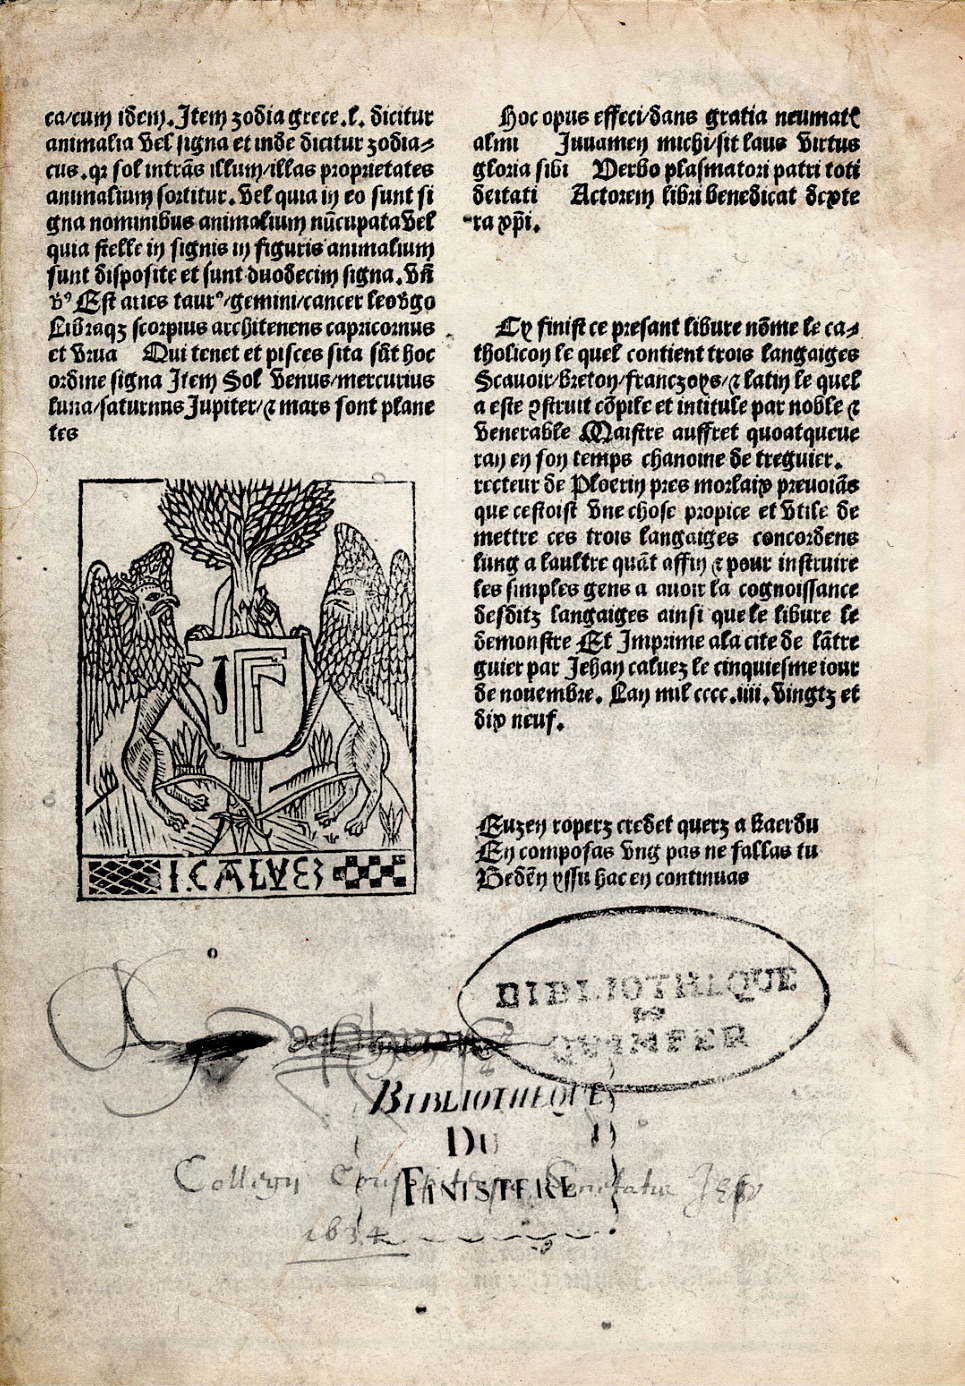 ca/cum idem. Item zodia grece.l. dicitur
animalia vel signa et inde dicitur zodia-
cus. qr sol intrãs illum/illas proprietates
animalium sortitur. vel quia in eo sunt si
gna nominibus animalium nũcupata vel
quia stelle in signis in figuris animalium
sunt disposite et sunt duodecim signa. Vñ
Est aries taurꝰ/gemini/cancer leo vgo
Libraqꝫ scorpius architenens capricornus
et vrna Qui tenet et pisces sita sũt hoc
ordine signa Item Sol venus/mercurius
luna/saturnus Jupiter/⁊ mars sont plane
tes
I.CALVEZ
Hoc opus effeci/dans gratia neumatꝭ
almi Juuamen michi/sit laus virtus
gloria sibi Verbo plasmatori patri toti
deitati Actorem libri benedicat dexte
ra xp̃i.
Cy finist ce presant libure nõme le ca-
tholicon le quel contient trois langaiges
Scauoir/breton/franczoys/⁊ latin le quel
a este ꝯstruit cõpile et intitule par noble ⁊
venerable Maistre auffret quoatqueue
ran en son temps chanoine de treguier.
recteur de Ploerin pres morlaix preuoiãs
que cestoist vne chose propice et vtile de
mettre ces trois langaiges concordens
lung a laultre quãt affin ⁊ pour instruire
les simples gens a auoir la cognoissance
desditz langaiges ainsi que le libure le
demonstre Et Imprime a la cite de lãtre
guier par Jehan caluez le cinquiesme iour
de nouembre. Lan mil cccc.iiii. vingtz et
dix neuf.
Euzen roperz credet querz a kaerdu
En composas vng pas ne fallas tu
Bedẽn yssu hac en continuas
BIBLIOTHEQUE
DE
QUIMPER
BIBLIOTHEQUE
DU
FINISTERE
Collegij Societatis Jesu